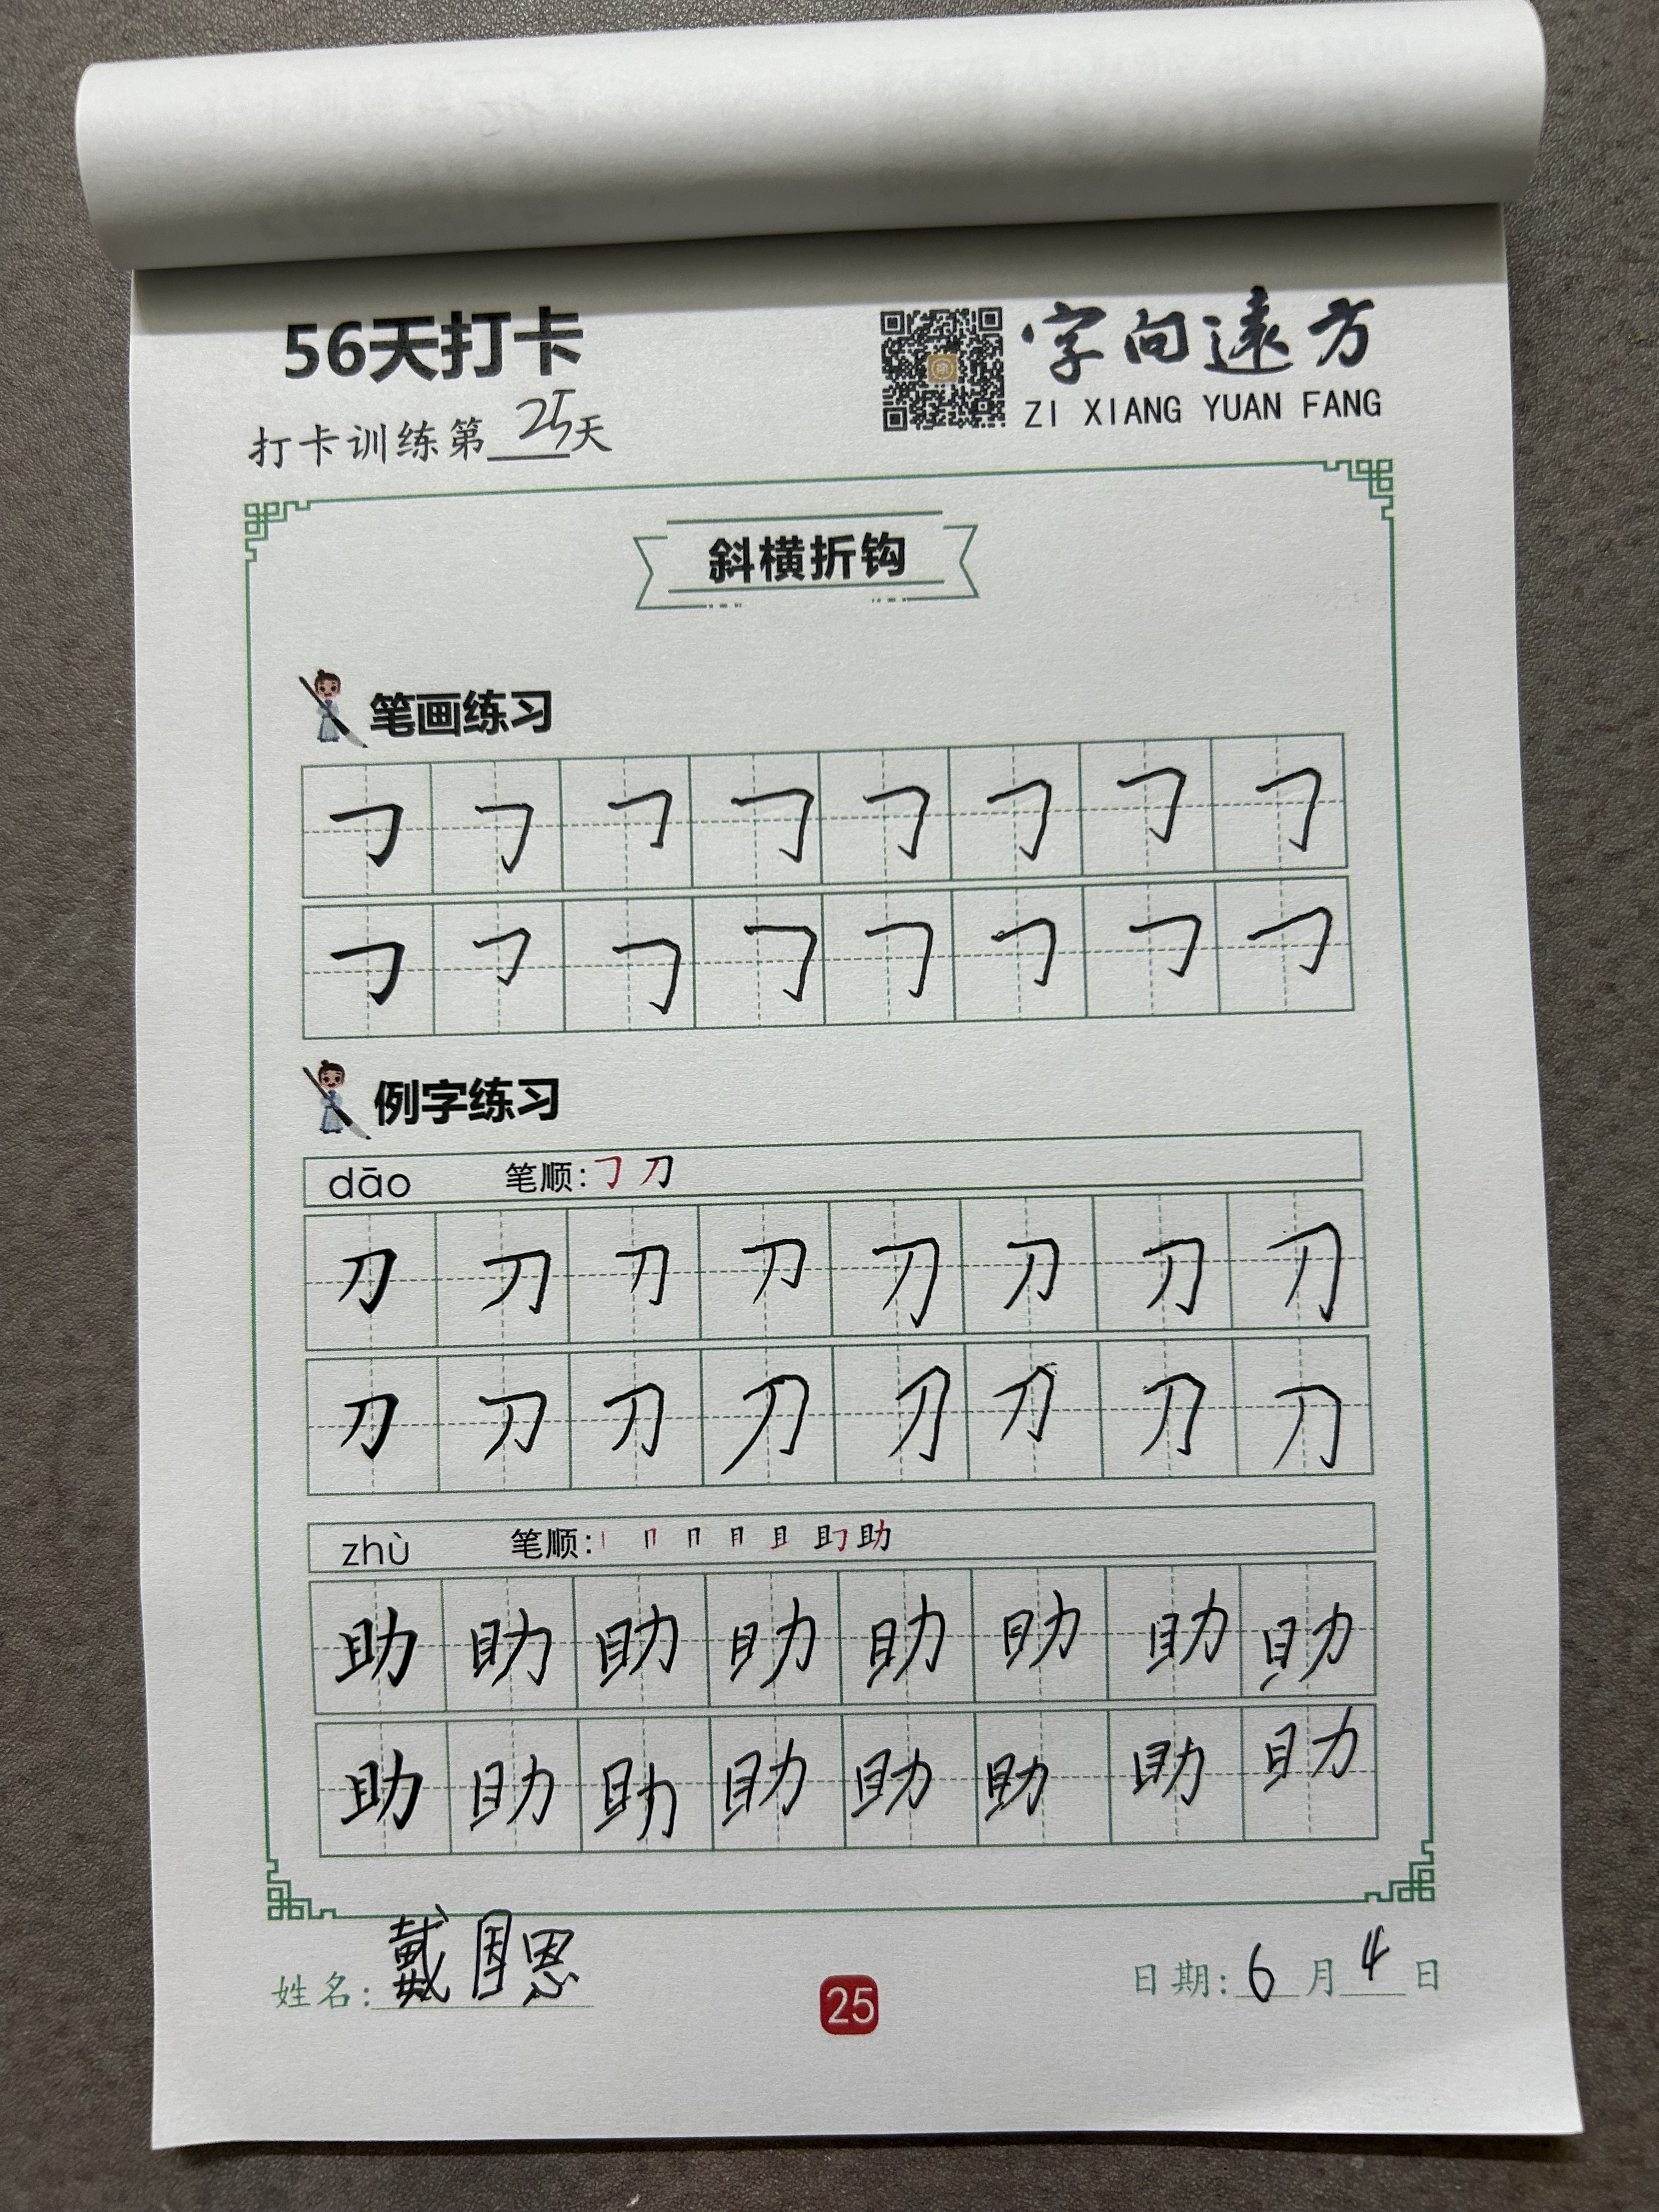 56天打卡
字向遠方
ZI XIANG YUAN FANG
打卡训练第25天
斜横折钩
笔画练习
㇆ ㇆ ㇆ ㇆ ㇆ ㇆ ㇆ ㇆
㇆ ㇆ ㇆ ㇆ ㇆ ㇆ ㇆ ㇆
例字练习
dāo 笔顺:㇆ 刀
刀 刀 刀 刀 刀 刀 刀 刀
刀 刀 刀 刀 刀 刀 刀 刀
zhù 笔顺: 助
助 助 助 助 助 助 助 助
助 助 助 助 助 助 助 助
姓名:戴国恩
25
日期:6月4日